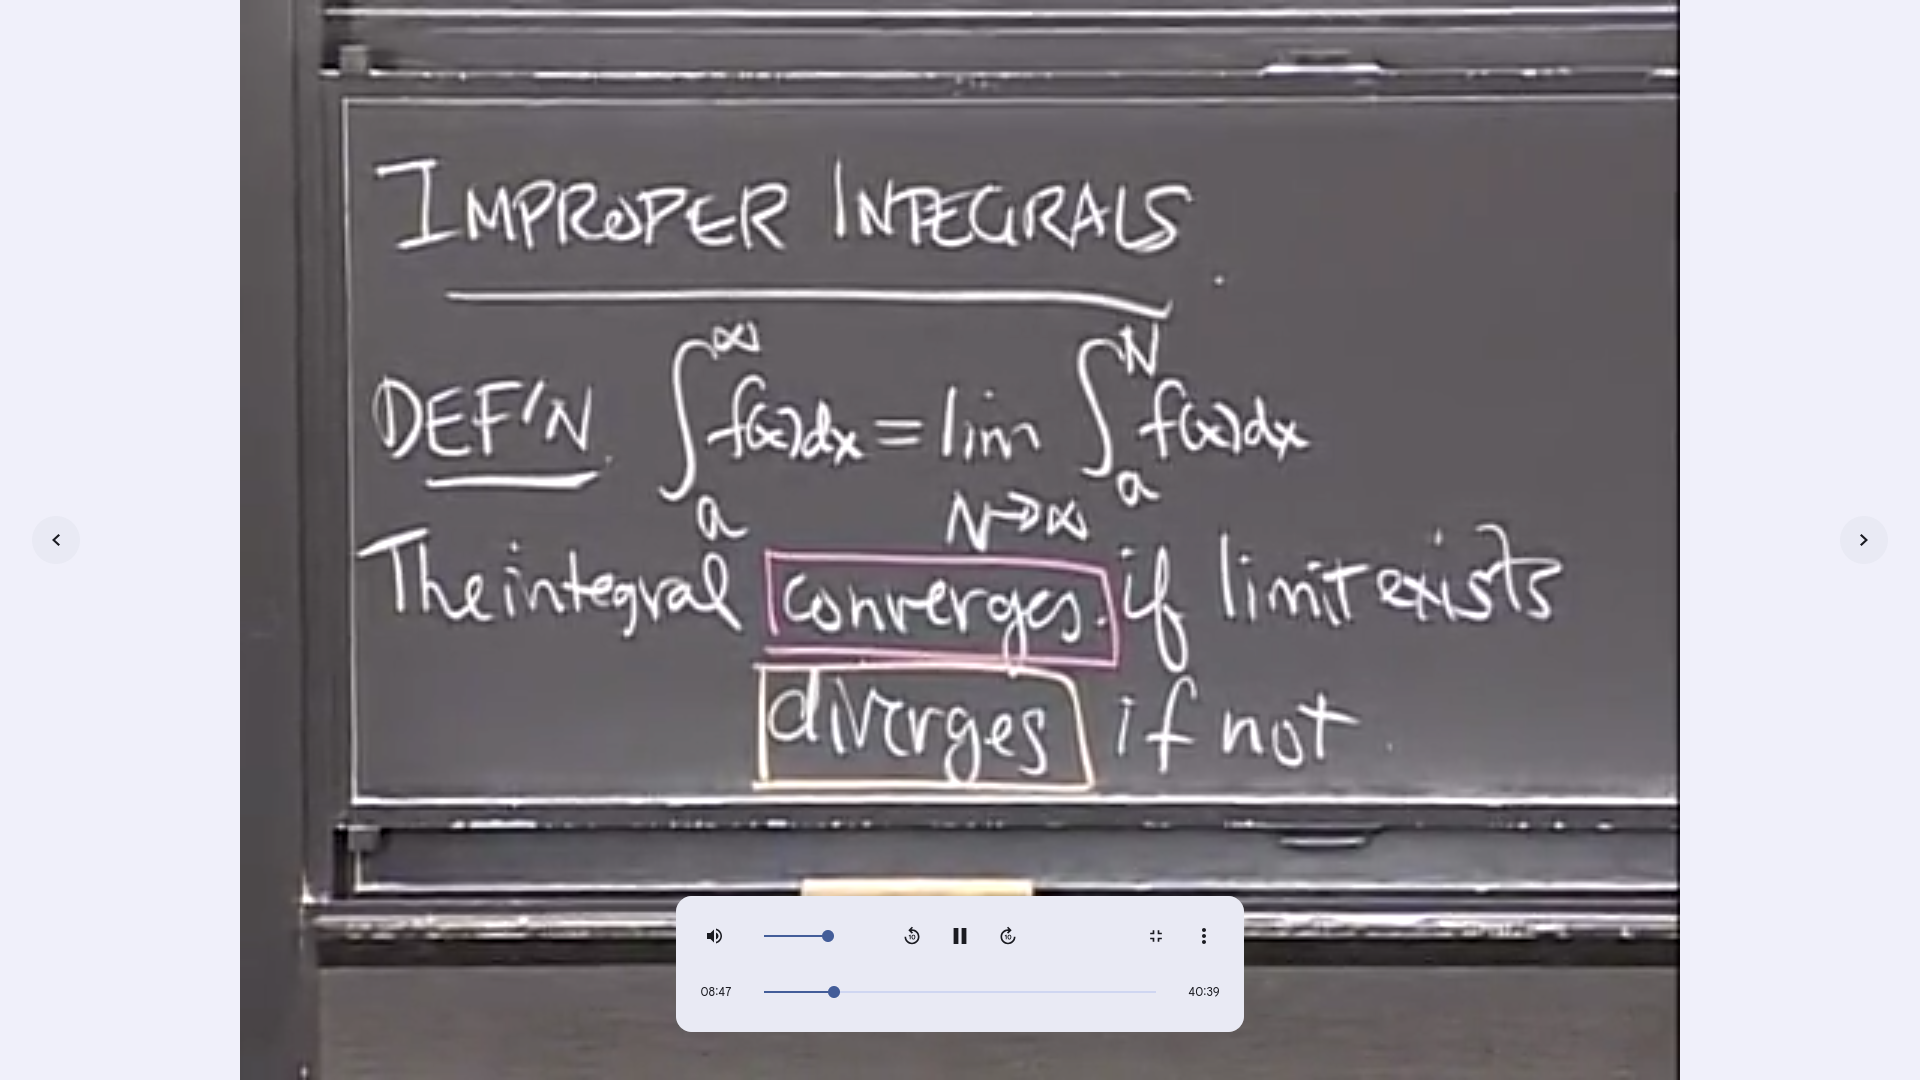 IMPROPER INTEGRALS
DEF'N ∫_a^∞ f(x)dx = lim_{N→∞} ∫_a^N f(x)dx
The integral converges if limit exists
diverges if not.
10 10
08:47 40:39